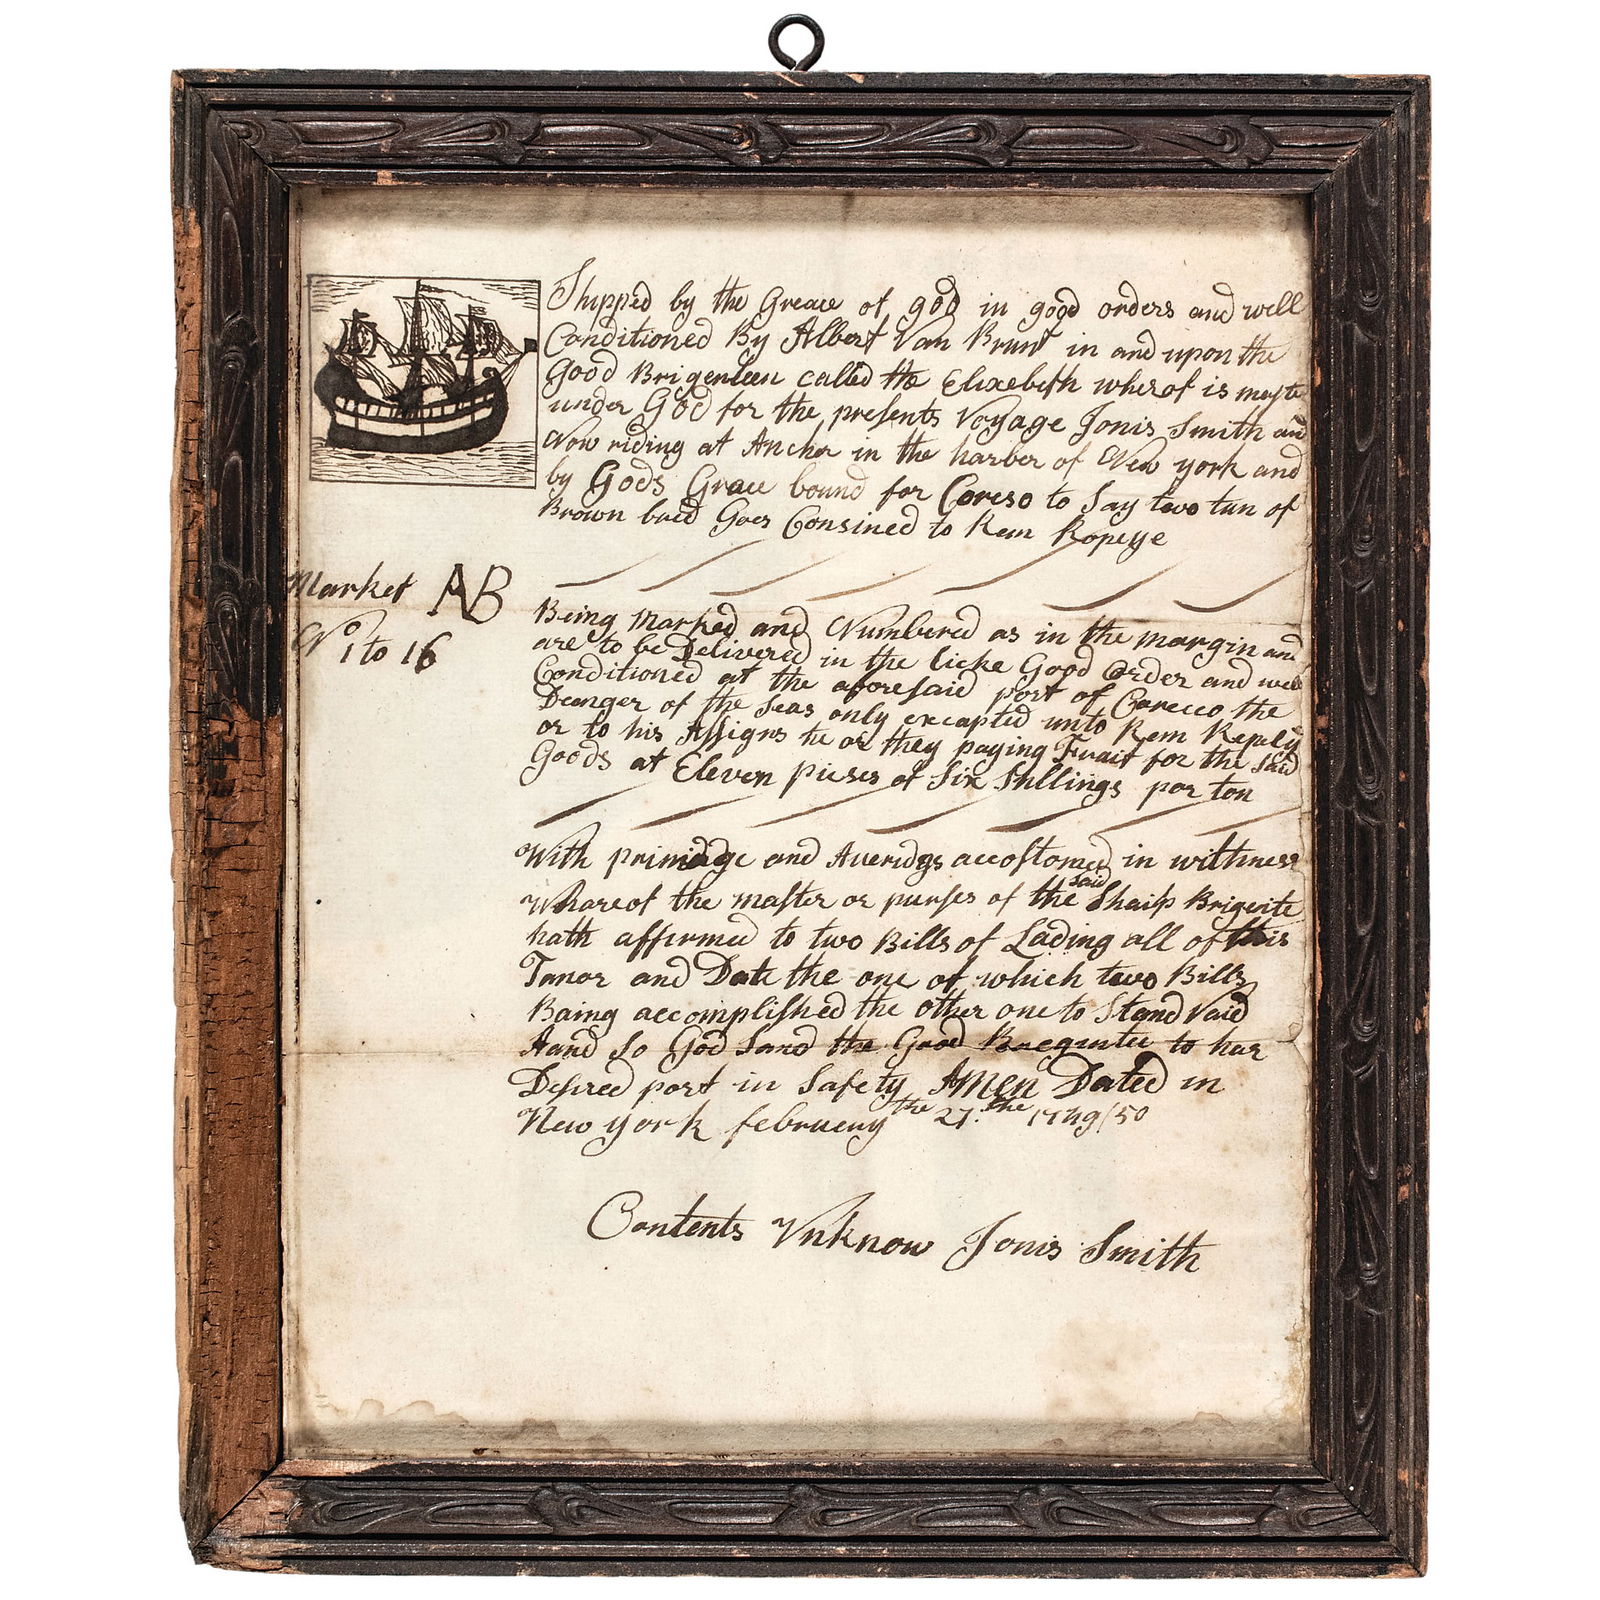 Shipped by the Greace of god in good orders and well
Conditioned By Albert Van Brunt in and upon the
Good Brigenteen called the Elixebeth wherof is maste
under God for the presents Voyage Jonis Smith and
Now riding at Ancher in the harber of New york and
by Gods Grace bound for Coreso to Say two tun of
Brown bred Goes Consined to Rem Ropeye
Market AB
No 1 to 16
Being Marked and Numbered as in the margin and
are to be Delivered in the licke Good order and well
Conditioned at the aforesaid port of Corecco the
Deanger of the Seas only excapted unto Rem
or to his Assigns he or they paying Frait for the Said
Goods at Eleven pieses of Six Shllings por ton
With primidge and Averidgs accostomed in withness
Whareof the master or purses of the said Shaip Brigente
hath affirmed to two Bills of Lading all of this
Tanor and Date the one of which two Bills
Baing accomplished the other one to Stand Vaid
Aand so God Sand the Good to har
Desired port in Safety AMEN Dated in
New york februeny the 27.the 1749/50
Contents Vnknow Jonis Smith